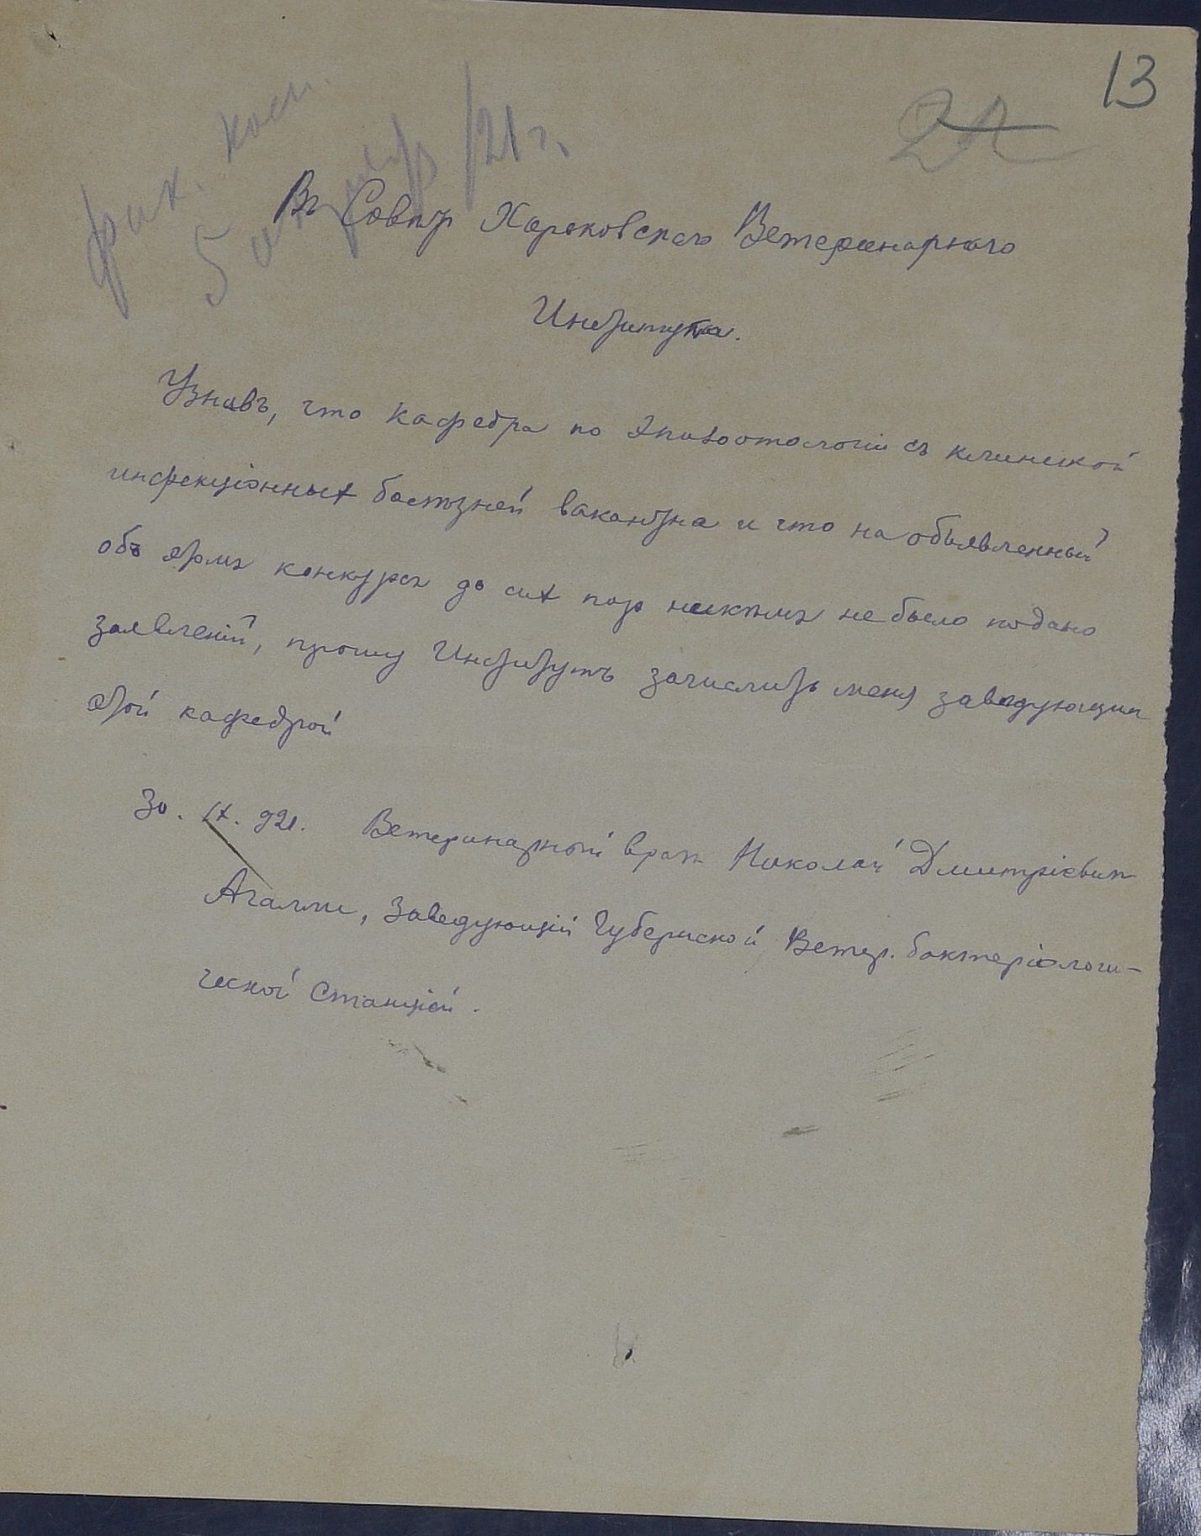 13
фак. ком.
5 октября /21 г.
Въ Советъ Харьковскаго Ветеринарнаго
Института.
Узнавъ, что кафедра по эпизоотологіи съ клиникой
инфекціонных болѣзней вакантна и что на объявленный
объ этомъ конкурсъ до сих поръ никѣмъ не было подано
заявленій, прошу Институтъ зачислить меня заведующим
этой кафедрой
30. IX. 921. Ветеринарный врач Николай Дмитріевич
Агалли, Заведующій Губернской Ветер. бактеріологи-
ческой Станціей.